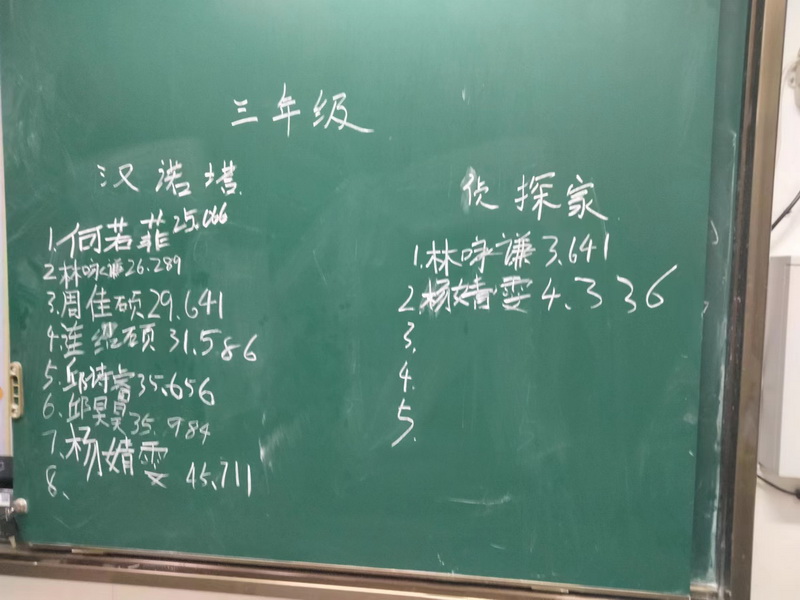 三年级
汉诺塔
1.何若菲25.066
2.林咏谦26.289
3.周佳硕29.641
4.莲绍硕31.586
5.邱诗睿35.656
6.邱昊昊35.984
7.杨婧雯45.711
8.
侦探家
1.林咏谦3.641
2.杨婧雯4.336
3.
4.
5.